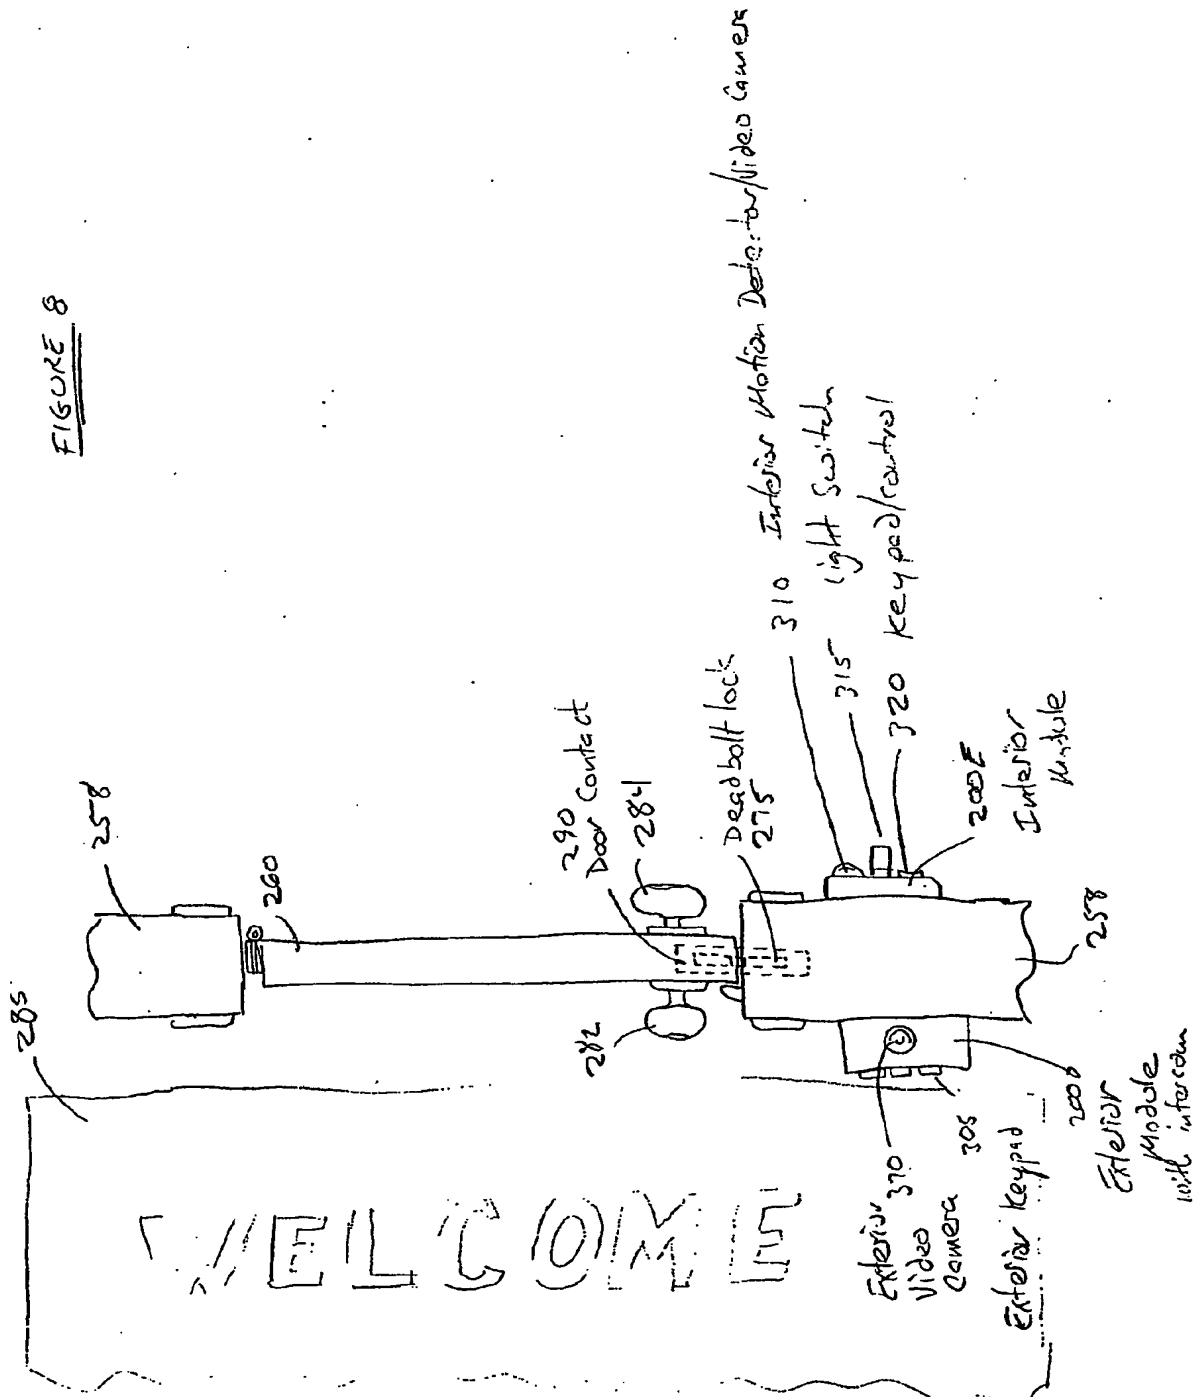 FIGURE 8
285
258
260
290
Door Contact
284
282
Deadbolt lock
275
310 Interior Motion Detector/Video Camera
315 Light Switch
320 Keypad/control
200E
Interior
Module
258
WELCOME
370
Exterior
Video
Camera
305
Exterior Keypad
200D
Exterior
Module
with intercom